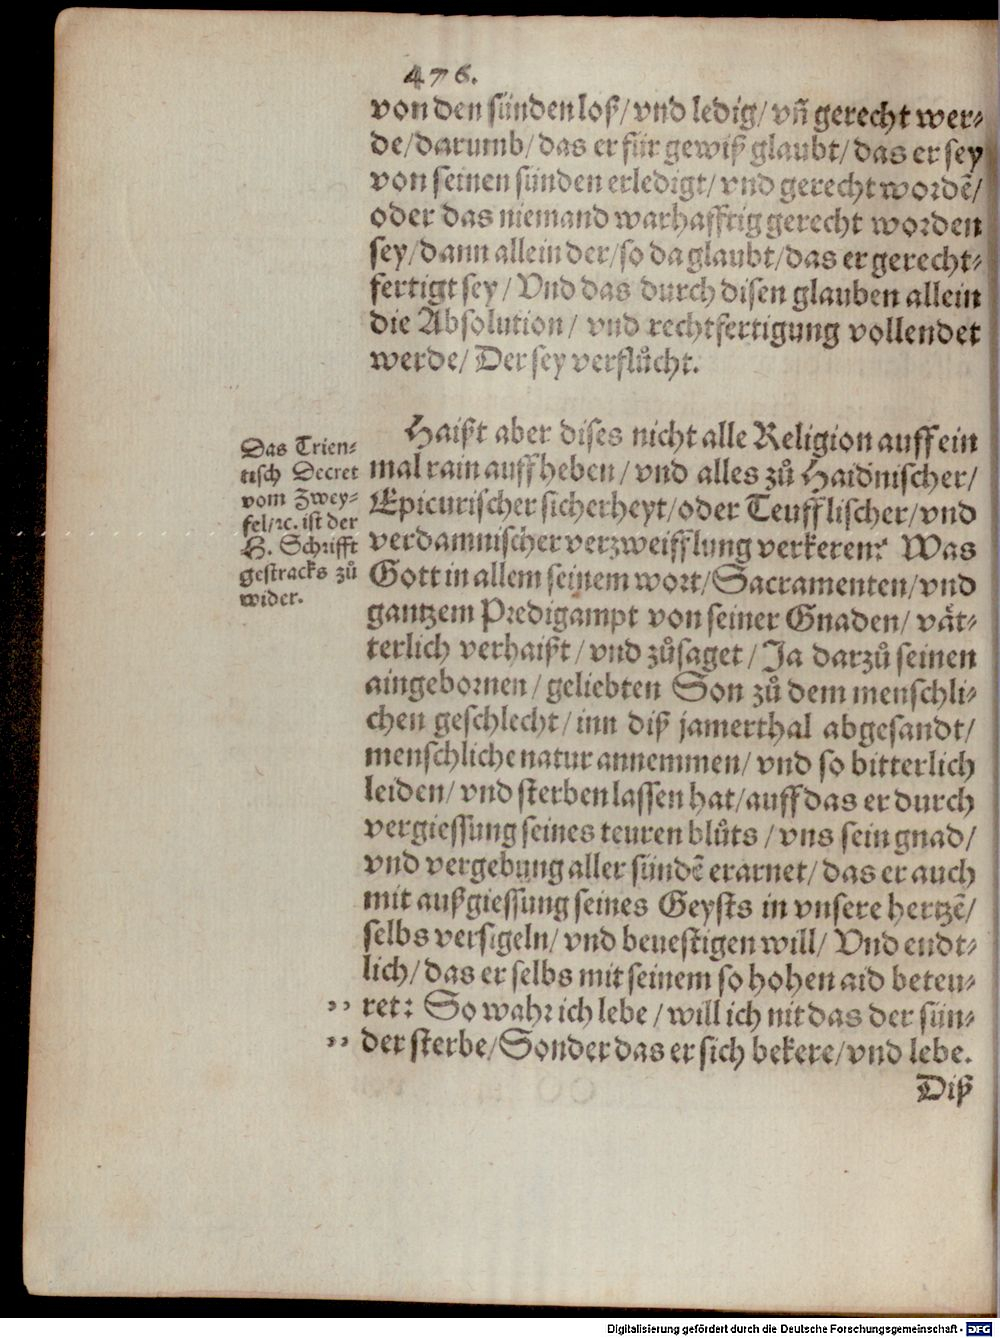 476.
von den sünden loß/ vnd ledig/ vñ gerecht wer⸗
de/ darumb/ das er für gewiß glaubt/ das er sey
von seinen sünden erledigt/ vnd gerecht wordẽ/
oder das niemand warhafftig gerecht worden
sey/ dann allein der/ so da glaubt/ das er gerecht⸗
fertigt sey/ Vnd das durch disen glauben allein
die Absolution/ vnd rechtfertigung vollendet
werde/ Der sey verflůcht.
Haißt aber dises nicht alle Religion auff ein
mal rain auffheben/ vnd alles zů Haidnischer/
Epicurischer sicherheyt/ oder Teufflischer/ vnd
verdamnischer verzweifflung verkeren? Was
Gott in allem seinem wort/ Sacramenten/ vnd
gantzem Predigampt von seiner Gnaden/ vät⸗
terlich verhaißt/ vnd zůsaget/ Ja darzů seinen
aingebornen/ geliebten Son zů dem menschli⸗
chen geschlecht/ inn diß jamerthal abgesandt/
menschliche natur annemmen/ vnd so bitterlich
leiden/ vnd sterben lassen hat/ auff das er durch
vergiessung seines teuren blůts/ vns sein gnad/
vnd vergebung aller sündẽ erarnet/ das er auch
mit außgiessung seines Geysts in vnsere hertzẽ/
selbs versigeln/ vnd beuestigen will/ Vnd endt⸗
lich/ das er selbs mit seinem so hohen aid beteu⸗
,, ret: So wahr ich lebe/ will ich nit das der sün⸗
,, der sterbe/ Sonder das er sich bekere/ vnd lebe.
Diß
Das Trien⸗
tisch Decret
vom Zwey⸗
fel/ ꝛc. ist der
H. Schrifft
gestracks zů
wider.
Digitalisierung gefördert durch die Deutsche Forschungsgemeinschaft - DFG